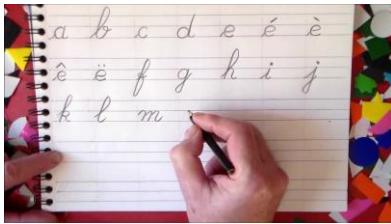 a b c d e é è
ê ë f g h i j
k l m